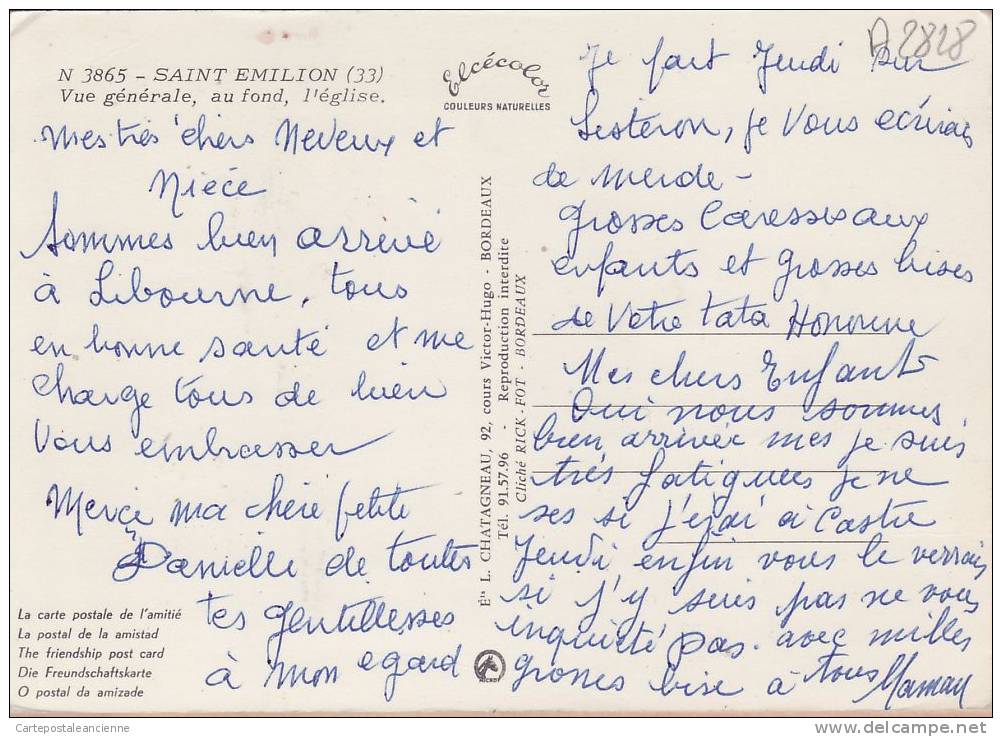 A2828
N 3865 - SAINT EMILION (33)
Vue générale, au fond, l'église.
Elcécolor
COULEURS NATURELLES
Mes très chers Neveux et
Niece
Sommes bien arrivé
à Libourne, tous
en bonne santé et me
charge tous de bien
Vous embrasser
Merçi ma chère petite
Danielle de toutes
tes gentillesses
à mon egard
La carte postale de l'amitié
La postal de la amistad
The friendship post card
Die Freundschaftskarte
O postal da amizade
Éts L. CHATAGNEAU, 92, cours Victor-Hugo - BORDEAUX
Tél. 91.57.96 - Reproduction interdite
Cliché RICK-FOT - BORDEAUX
Je part Jeudi sur
Sisteron, je Vous écrirais
de
grosses Caresses aux
enfants et grosses bises
de Votre tata Honorine
Mes chers Enfant
Oui nous sommes
bien arrivée mes je suis
très fatiguées je ne
ses si j'irai à Castre
Jeudi enfin vous le verrais
si j'y suis pas ne vous
inquiété pas. avec milles
grosses bise à tous Maman
Cartepostaleancienne
www.delcampe.net